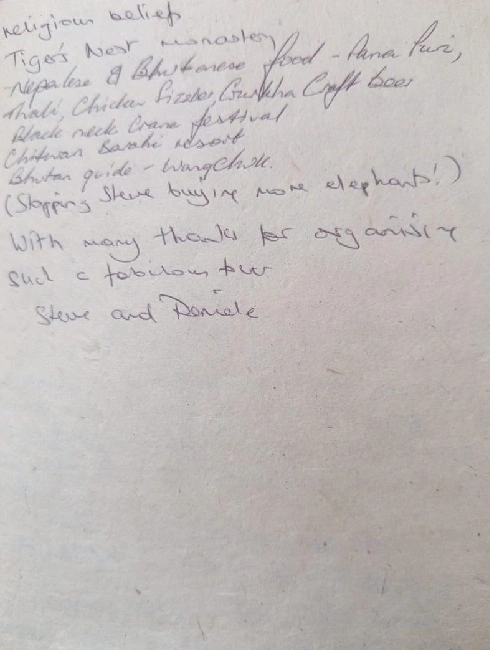 religious beliefs
Tiger's Nest monastery
-Nepalese & Bhutanese food - Pana Puri,
Thali, Chicken Sizzler, Gurkha Craft beer
Black neck Crane festival
Chitwan Barahi resort
Bhutan guide - Wangchuk.
(Stopping Steve buying more elephants!)
With many thanks for organising
such a fabulous tour
Steve and Daniele